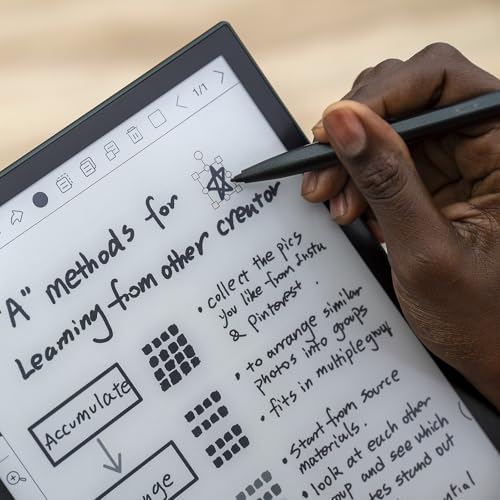 1/1
"A" methods for
Learning from other creator
• collect the pics
you like from Insta
& Pinterest.
Accumulate
• to arrange similar
photos into groups
• fits in multiple group
• Start from source
materials.
• look at each other
and see which
stand out